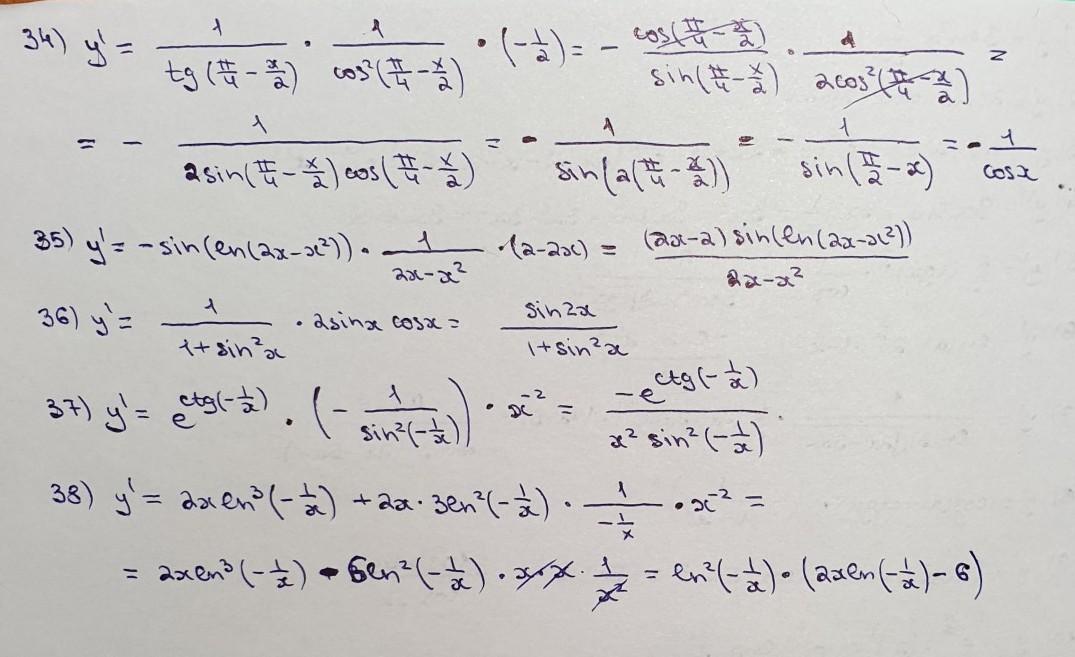 34) y' = 1/tg(π/4 - x/2) · 1/cos²(π/4 - x/2) · (-1/2) = - cos(π/4 - x/2)/sin(π/4 - x/2) · 1/2cos²(π/4 - x/2) =
= - 1/2sin(π/4 - x/2)cos(π/4 - x/2) = - 1/sin(2(π/4 - x/2)) = - 1/sin(π/2 - x) = - 1/cosx
35) y' = -sin(ln(2x-x²)) · 1/2x-x² · (2-2x) = (2x-2)sin(ln(2x-x²))/2x-x²
36) y' = 1/1+sin²x · 2sinx cosx = sin2x/1+sin²x
37) y' = e^ctg(-1/x) · (- 1/sin²(-1/x)) · x⁻² = -e^ctg(-1/x)/x² sin²(-1/x)
38) y' = 2xln³(-1/x) + 2x · 3ln²(-1/x) · 1/-1/x · x⁻² =
= 2xln³(-1/x) - 6ln²(-1/x) · x·x · 1/x² = ln²(-1/x) · (2xln(-1/x) - 6)